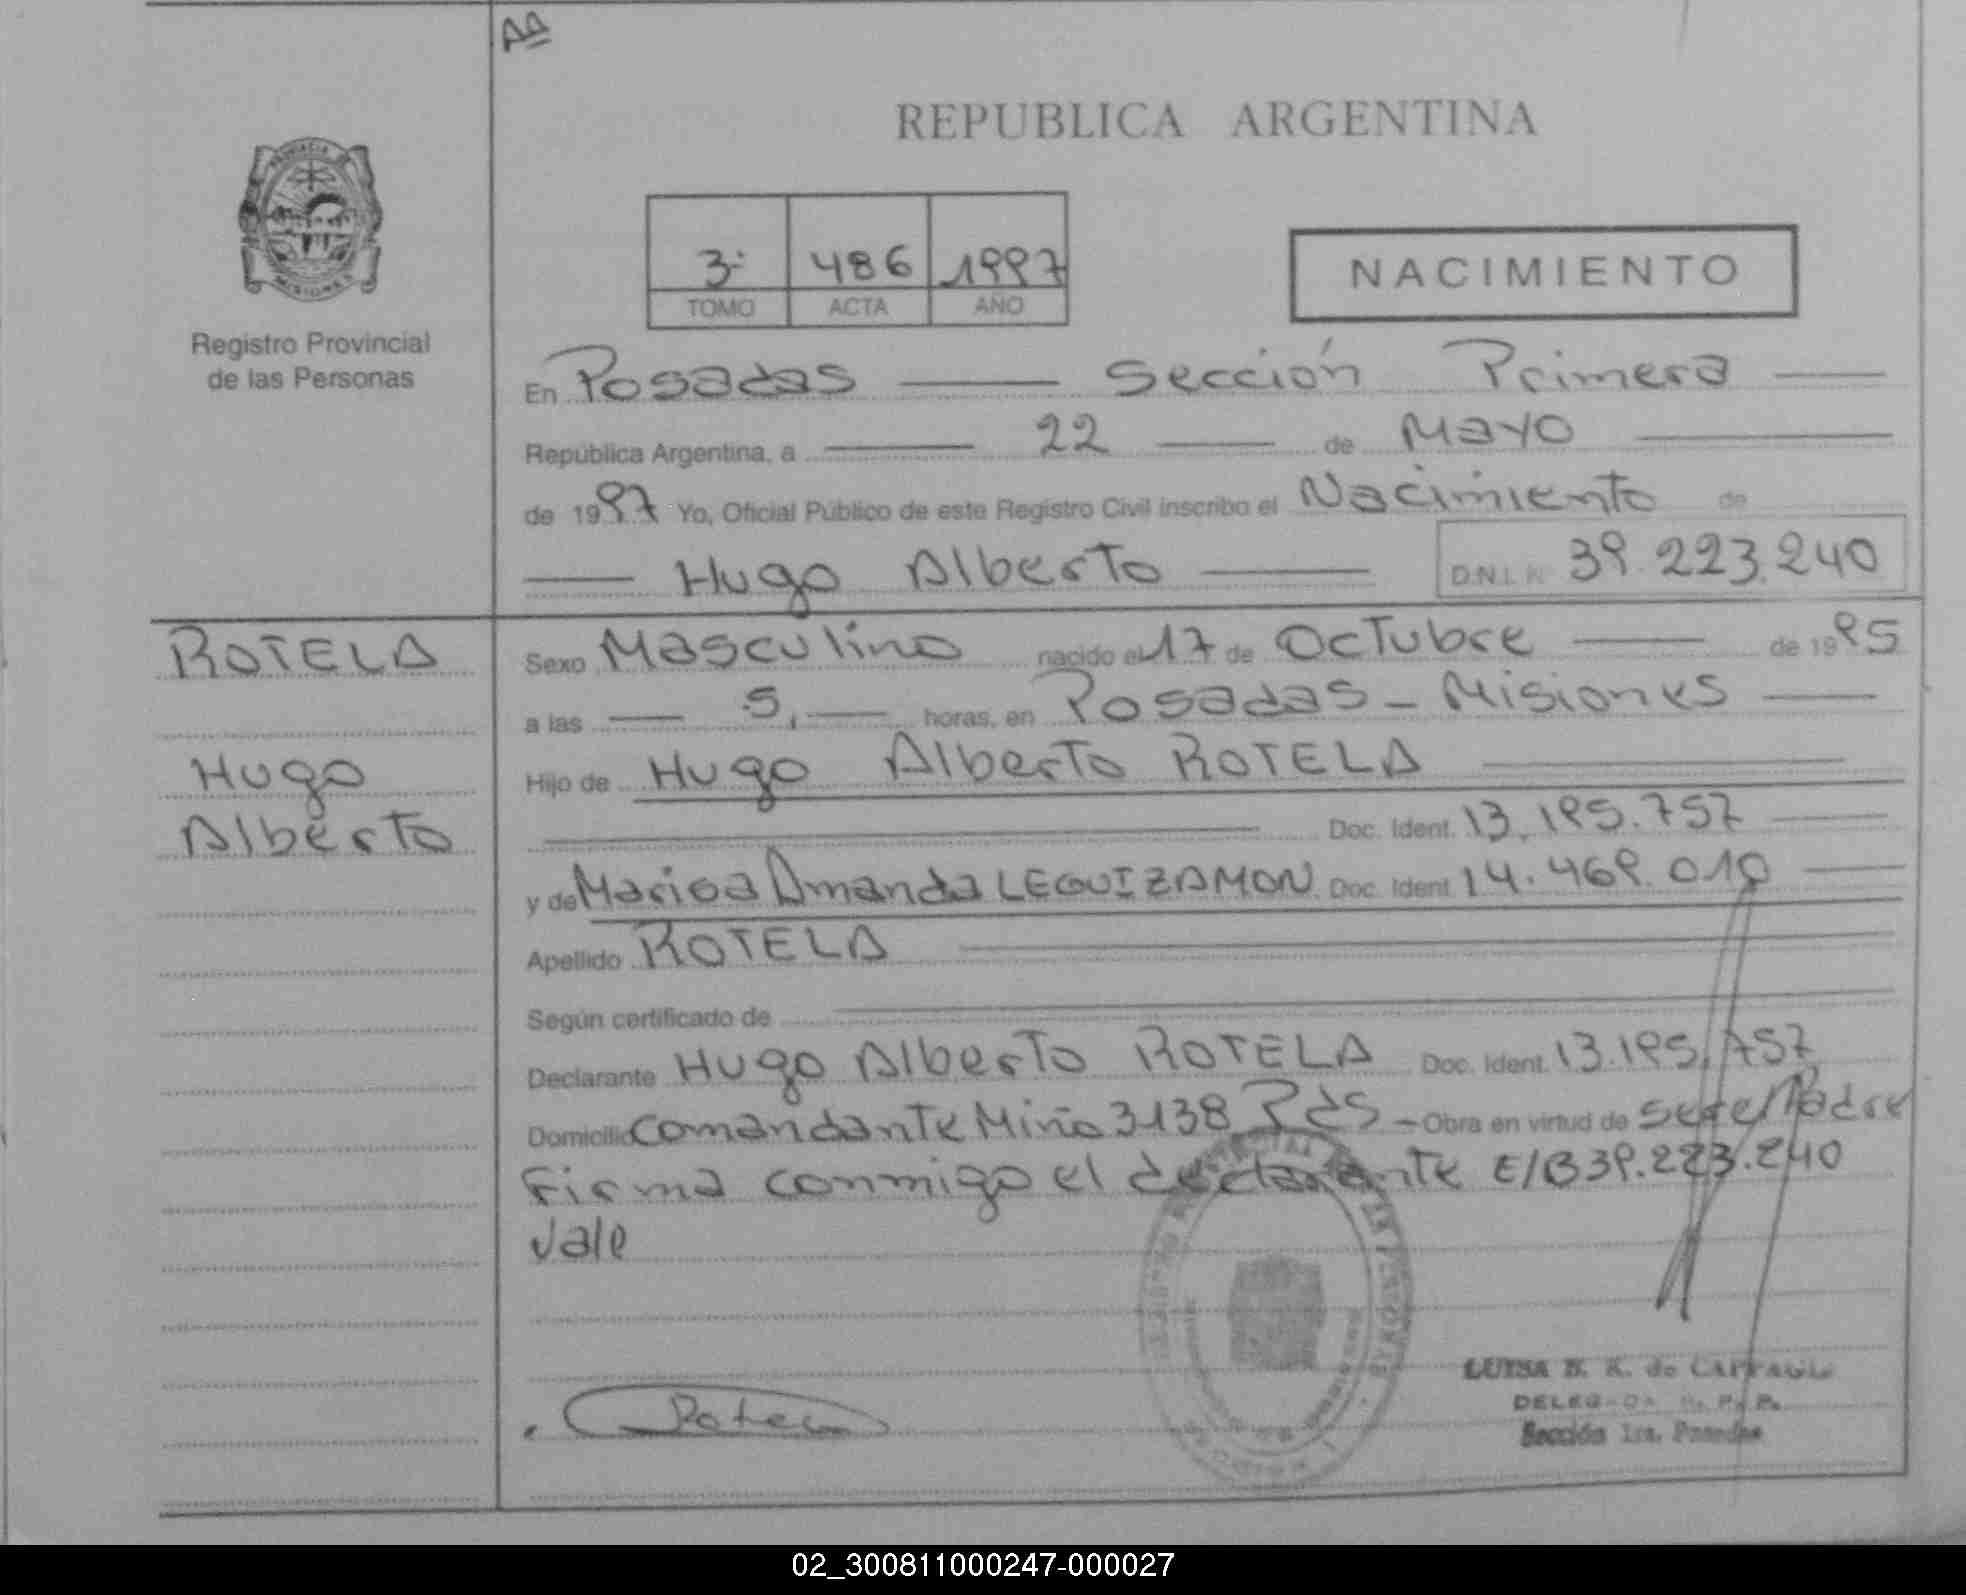 AA
REPUBLICA ARGENTINA
3º 486 1997
TOMO ACTA AÑO
NACIMIENTO
Registro Provincial
de las Personas
En Posadas Sección Primera
República Argentina, a 22 de Mayo
de 1997 Yo, Oficial Público de este Registro Civil inscribo el Nacimiento de
Hugo Alberto D.N.I. Nº 39.223.240
ROTELA
Hugo
Alberto
Sexo Masculino nacido el 17 de Octubre de 1995
a las 5, horas, en Posadas - Misiones
Hijo de Hugo Alberto ROTELA
Doc. Ident. 13.195.757
y de Marisa Amanda LEGUIZAMON Doc. Ident. 14.469.010
Apellido ROTELA
Según certificado de
Declarante Hugo Alberto ROTELA Doc. Ident. 13.195.757
Domicilio Comandante Miño 3138 Pds - Obra en virtud de ser el Padre
Firma conmigo el declarante E/B 39.223.240
Vale
Rotela
LUISA de
Sección 1ra. Posadas
02_300811000247-000027